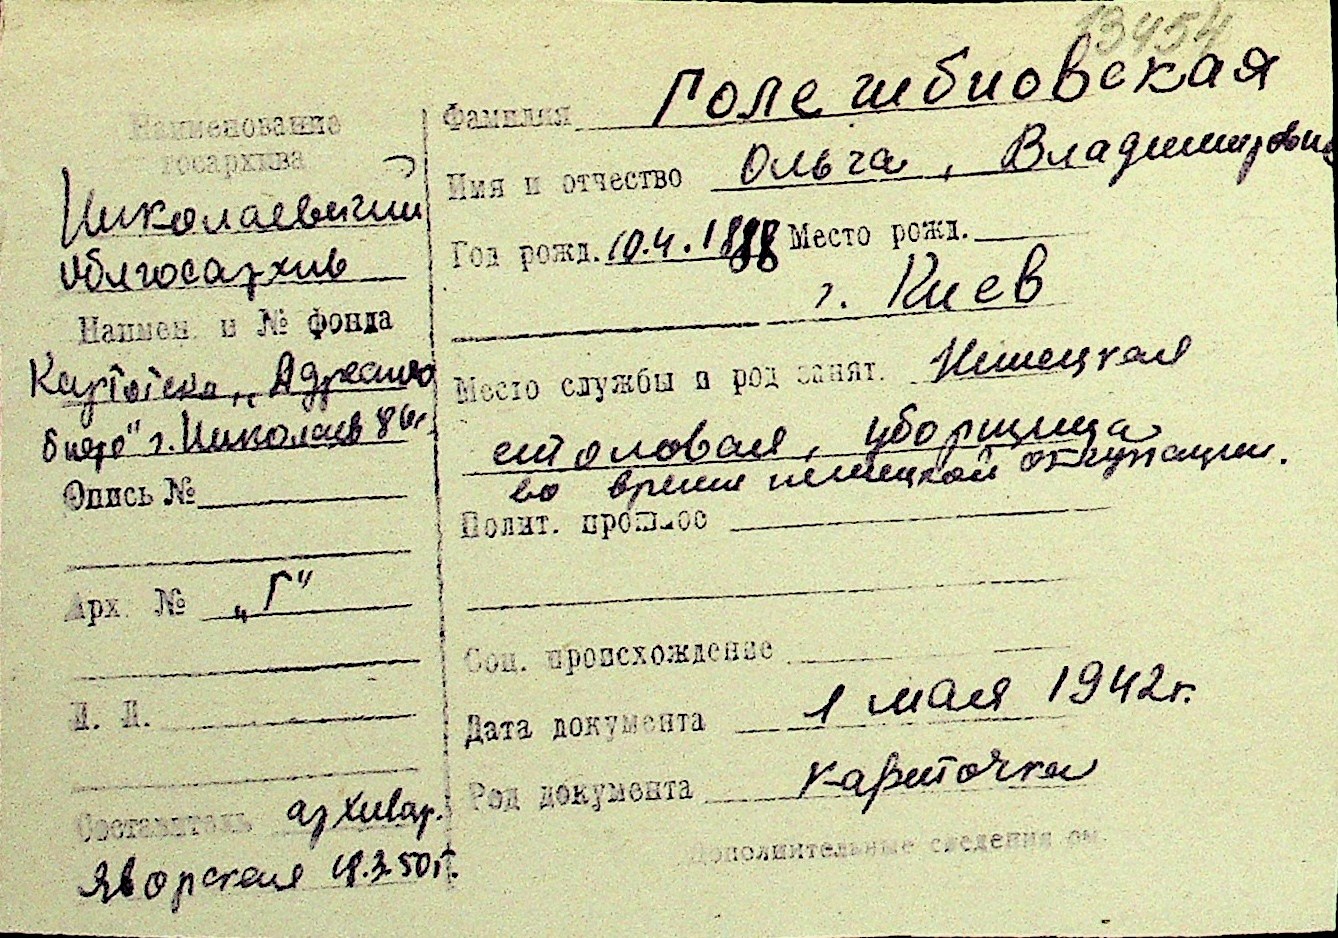 13454
Наименование
госархива
Николаевский
облгосархив
Наимен. и № фонда
Картотека „Адресного
бюро" г. Николаев
Опись №
Арх. № „Г"
Л. Л.
Составитель архивар.
Яворская 18.3.50 г.
Фамилия Голешбиовская
Имя и отчество Ольга, Владимировна
Год рожд. 10.4.1888 Место рожд.
г. Киев
Место службы и род занят. Немецкая
столовая, уборщица
во время немецкой оккупации.
Полит. прошлое
Соц. происхождение
Дата документа 1 мая 1942 г.
Род документа карточка
Дополнительные сведения см.